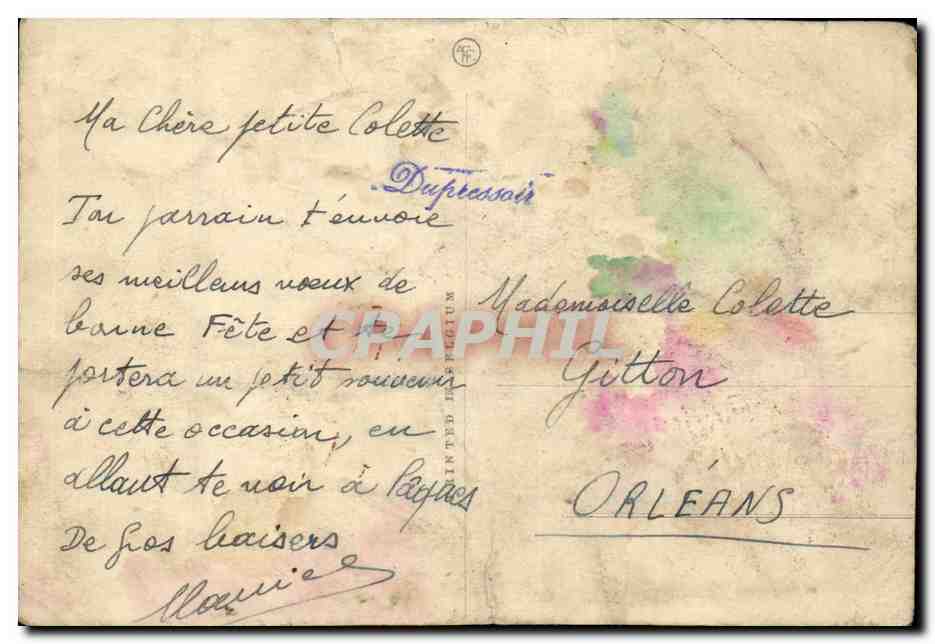 Ma Chère petite Colette
Dupressoir
Ton parrain t'envoie
ses meilleurs voeux de
bonne Fête et te
portera un petit souvenir
à cette occasion, en
allant te voir à Pâques
De gros baisers
Maurice
Mademoiselle Colette
Gitton
ORLÉANS
PRINTED IN BELGIUM
CPARHIL